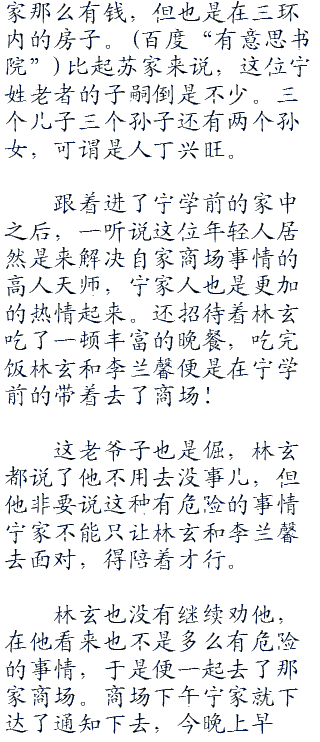 家那么有钱，但也是在三环
内的房子。(百度“有意思书
院”)比起苏家来说，这位宁
姓老者的子嗣倒是不少。三
个儿子三个孙子还有两个孙
女，可谓是人丁兴旺。
跟着进了宁学前的家中
之后，一听说这位年轻人居
然是来解决自家商场事情的
高人天师，宁家人也是更加
的热情起来。还招待着林玄
吃了一顿丰富的晚餐，吃完
饭林玄和李兰馨便是在宁学
前的带着去了商场！
这老爷子也是倔，林玄
都说了他不用去没事儿，但
他非要说这种有危险的事情
宁家不能只让林玄和李兰馨
去面对，得陪着才行。
林玄也没有继续劝他，
在他看来也不是多么有危险
的事情，于是便一起去了那
家商场。商场下午宁家就下
达了通知下去，今晚上早